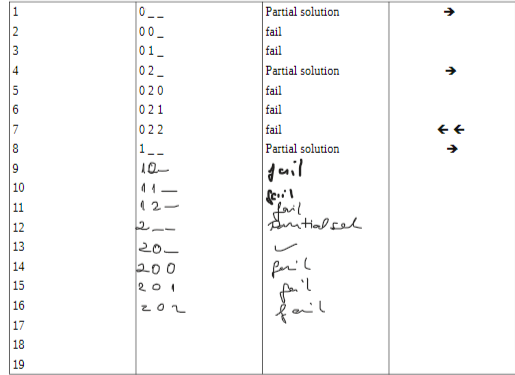 1 0 _ _ Partial solution →
2 0 0 _ fail
3 0 1 _ fail
4 0 2 _ Partial solution →
5 0 2 0 fail
6 0 2 1 fail
7 0 2 2 fail ← ←
8 1 _ _ Partial solution →
9 10 _ fail
10 11 _ fail
11 12 _ fail
12 2 _ _ Partial sol
13 20 _ ✓
14 200 fail
15 201 fail
16 202 fail
17
18
19